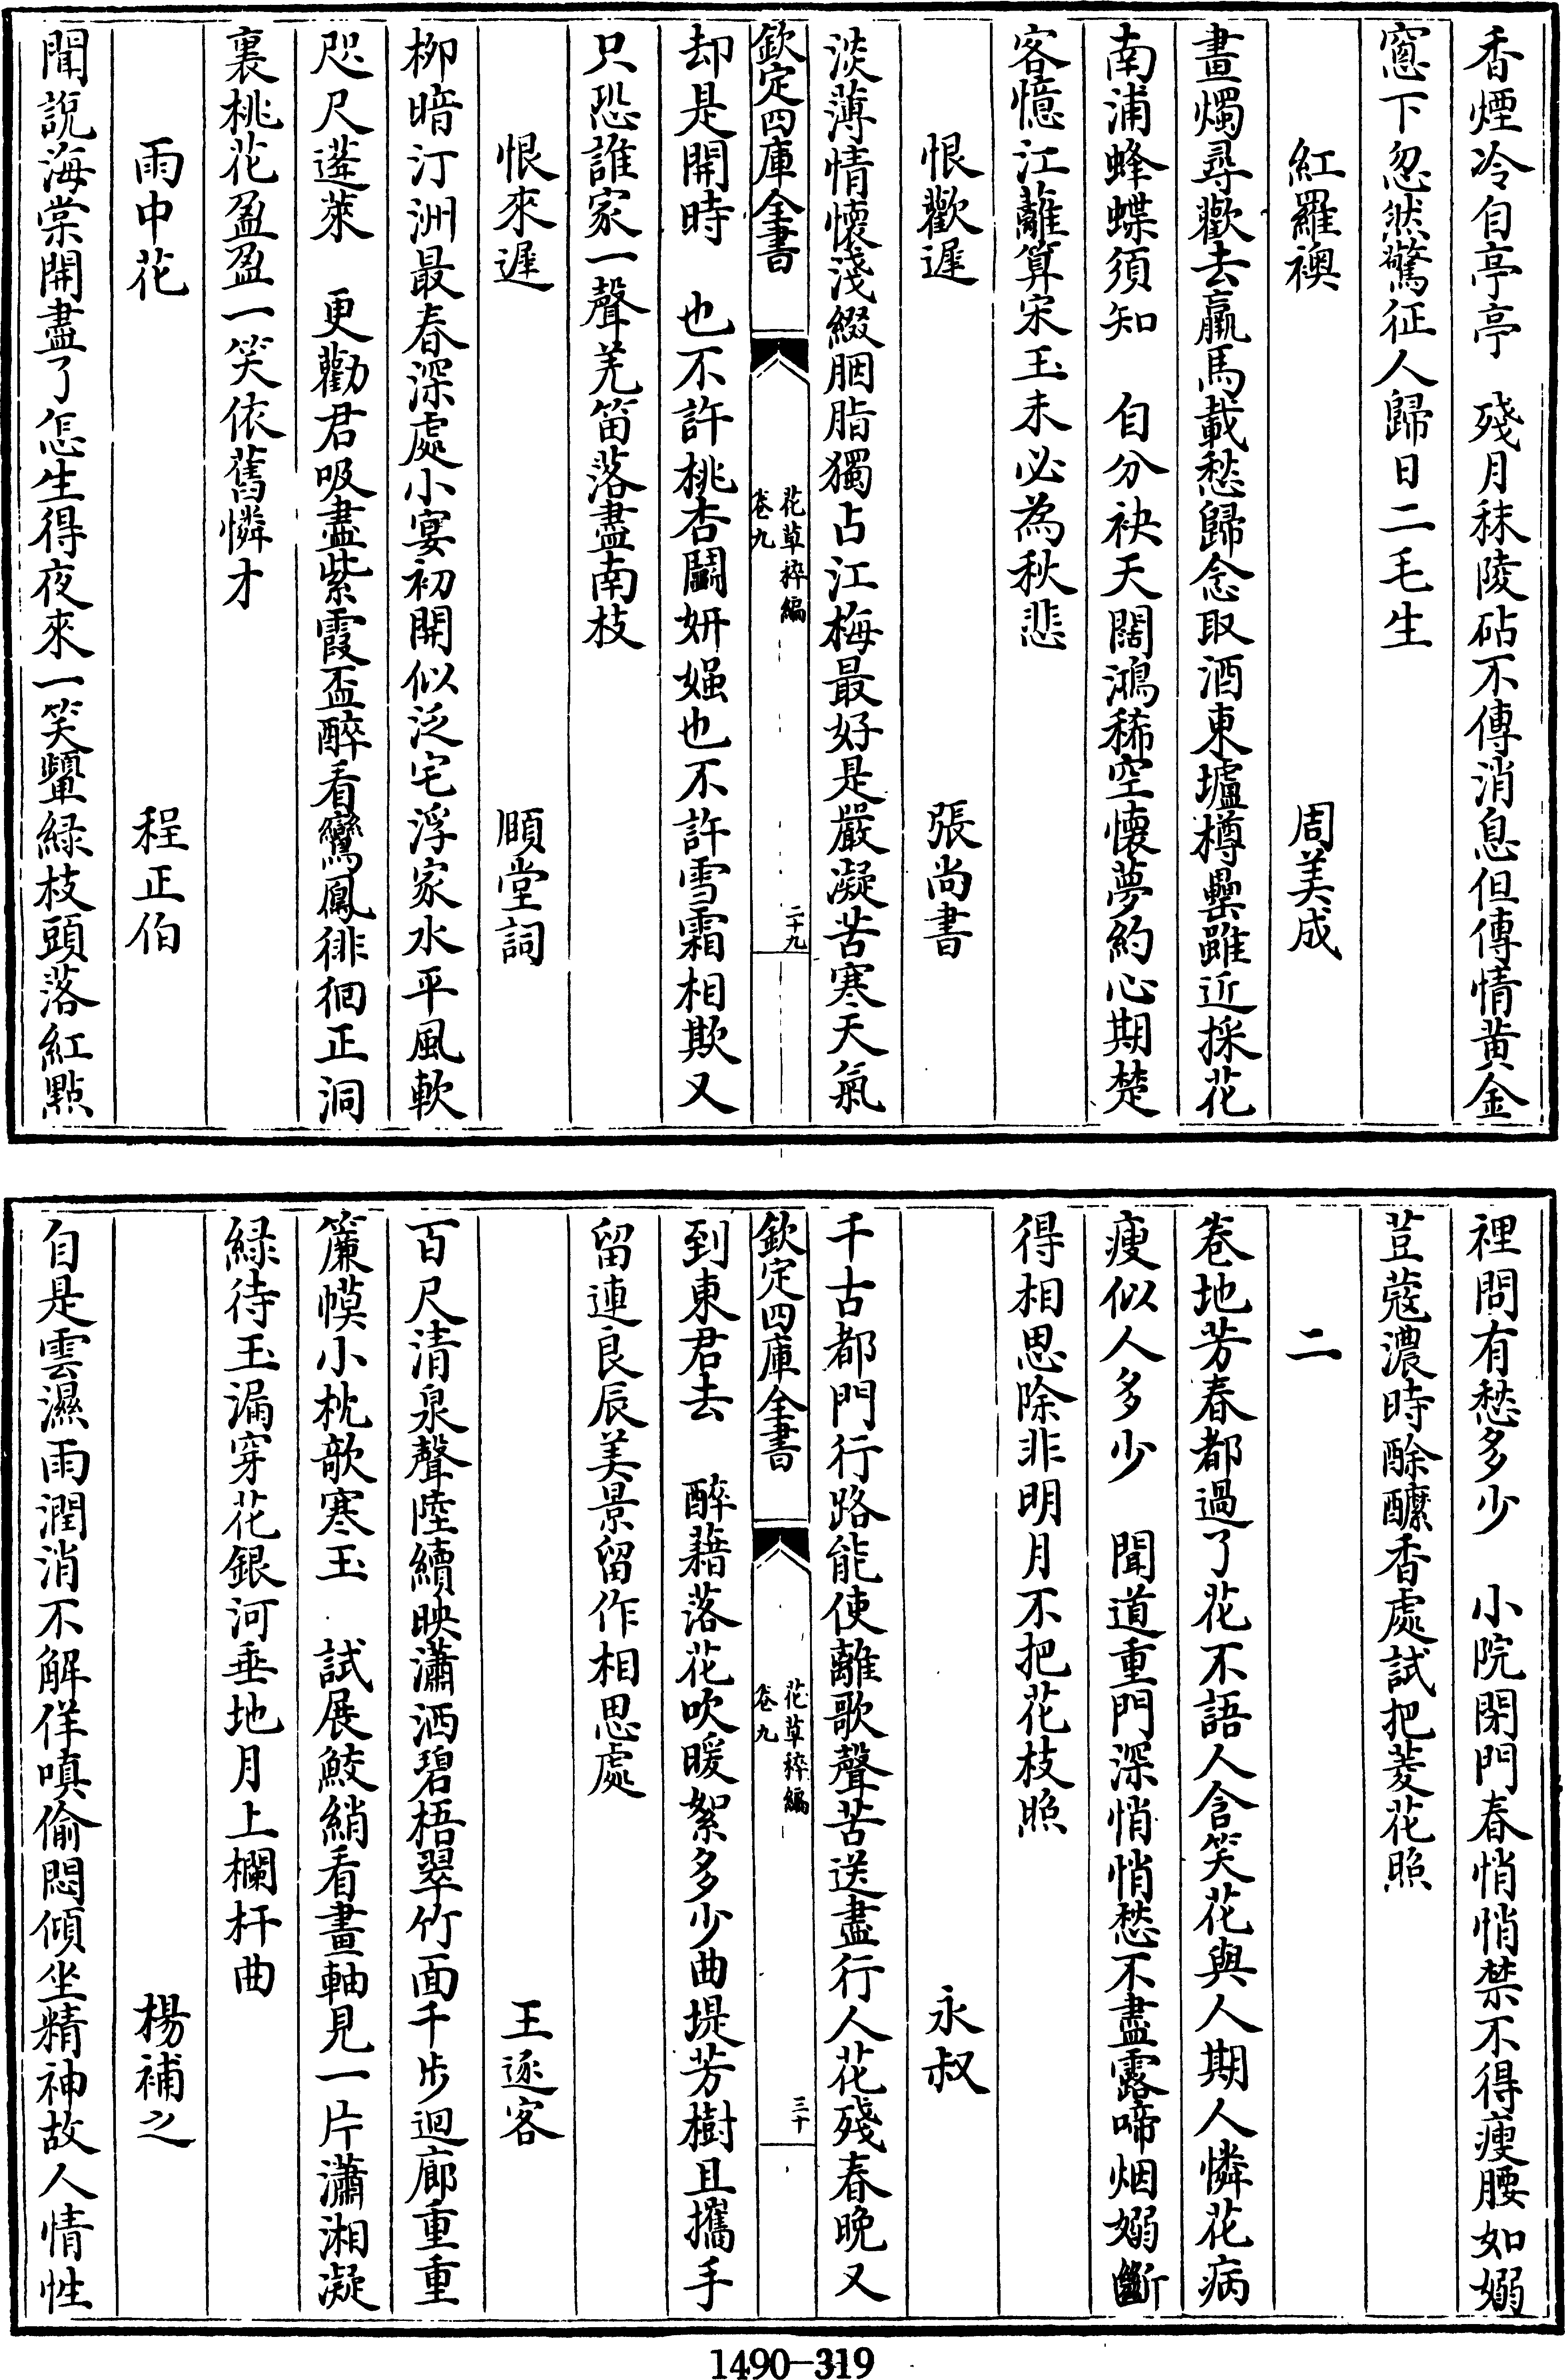 香煙冷自亭亭　殘月秣陵砧不傳消息但傳情黄金
窻下忽然驚征人歸日二毛生
紅羅襖　周美成
畫燭尋歡去羸馬載愁歸念取酒東壚樽罍雖近採花
南浦蜂蝶須知　自分袂天闊鴻稀空懷夢約心期楚
客憶江蘺算宋玉未必為秋悲
恨歡遲　張尚書
淡薄情懷淺綴胭脂獨占江梅最好是嚴凝苦寒天氣
欽定四庫全書　花草稡編　卷九　二十九
却是開時　也不許桃杏鬭妍媸也不許雪霜相欺又
只恐誰家一聲羌笛落盡南枝
恨來遲　順堂詞
柳暗汀洲最春深處小宴初開似泛宅浮家水平風軟
咫尺蓬萊　更勸君吸盡紫霞盃醉看鸞鳳徘徊正洞
裏桃花盈盈一笑依舊憐才
雨中花　程正伯
聞說海棠開盡了怎生得夜來一笑顰緑枝頭落紅點
裡問有愁多少　小院閑門春悄悄禁不得瘦腰如嫋
荳蔻濃時酴醿香處試把菱花照
二
巻地芳春都過了花不語人含笑花與人期人憐花病
瘦似人多少　聞道重門深悄悄愁不盡露啼烟嫋斷
得相思除非明月不把花枝照
永叔
千古都門行路能使離歌聲苦送盡行人花殘春晚又
欽定四庫全書　花草稡編　卷九　三十
到東君去　醉藉落花吹暖絮多少曲堤芳樹且攜手
留連良辰美景留作相思處
王逐客
百尺清泉聲陸續映瀟洒碧梧翠竹面千步迴廊重重
簾幙小枕欹寒玉　試展鮫綃看畫軸見一片瀟湘凝
緑待玉漏穿花銀河垂地月上欄杆曲
楊補之
自是雲濕雨潤消不解佯嗔偷悶傾坐精神故人情性
1490-319